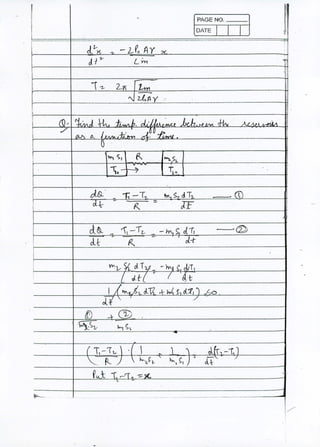 PAGE NO.
DATE
d²x/dt² = -2P₀AY/Lm x
T = 2π √(Lm/2P₀AY)
Q: Find the temp. difference between the reservoirs
as a function of time.
m₁S₁ R m₂S₂
T₁₀ → T₂₀
dQ/dt = (T₁-T₂)/R = m₂S₂dT₂/dt — ①
dQ/dt = (T₁-T₂)/R = -m₁S₁dT₁/dt — ②
m₂S₂dT₂/dt = -m₁S₁dT₁/dt
1/dt (m₂S₂dT₂ + m₁S₁dT₁) = 0.
①/m₂S₂ + ②/m₁S₁
((T₁-T₂)/R) · (1/m₂S₂ + 1/m₁S₁) = d(T₂-T₁)/dt
Put T₁-T₂ = x